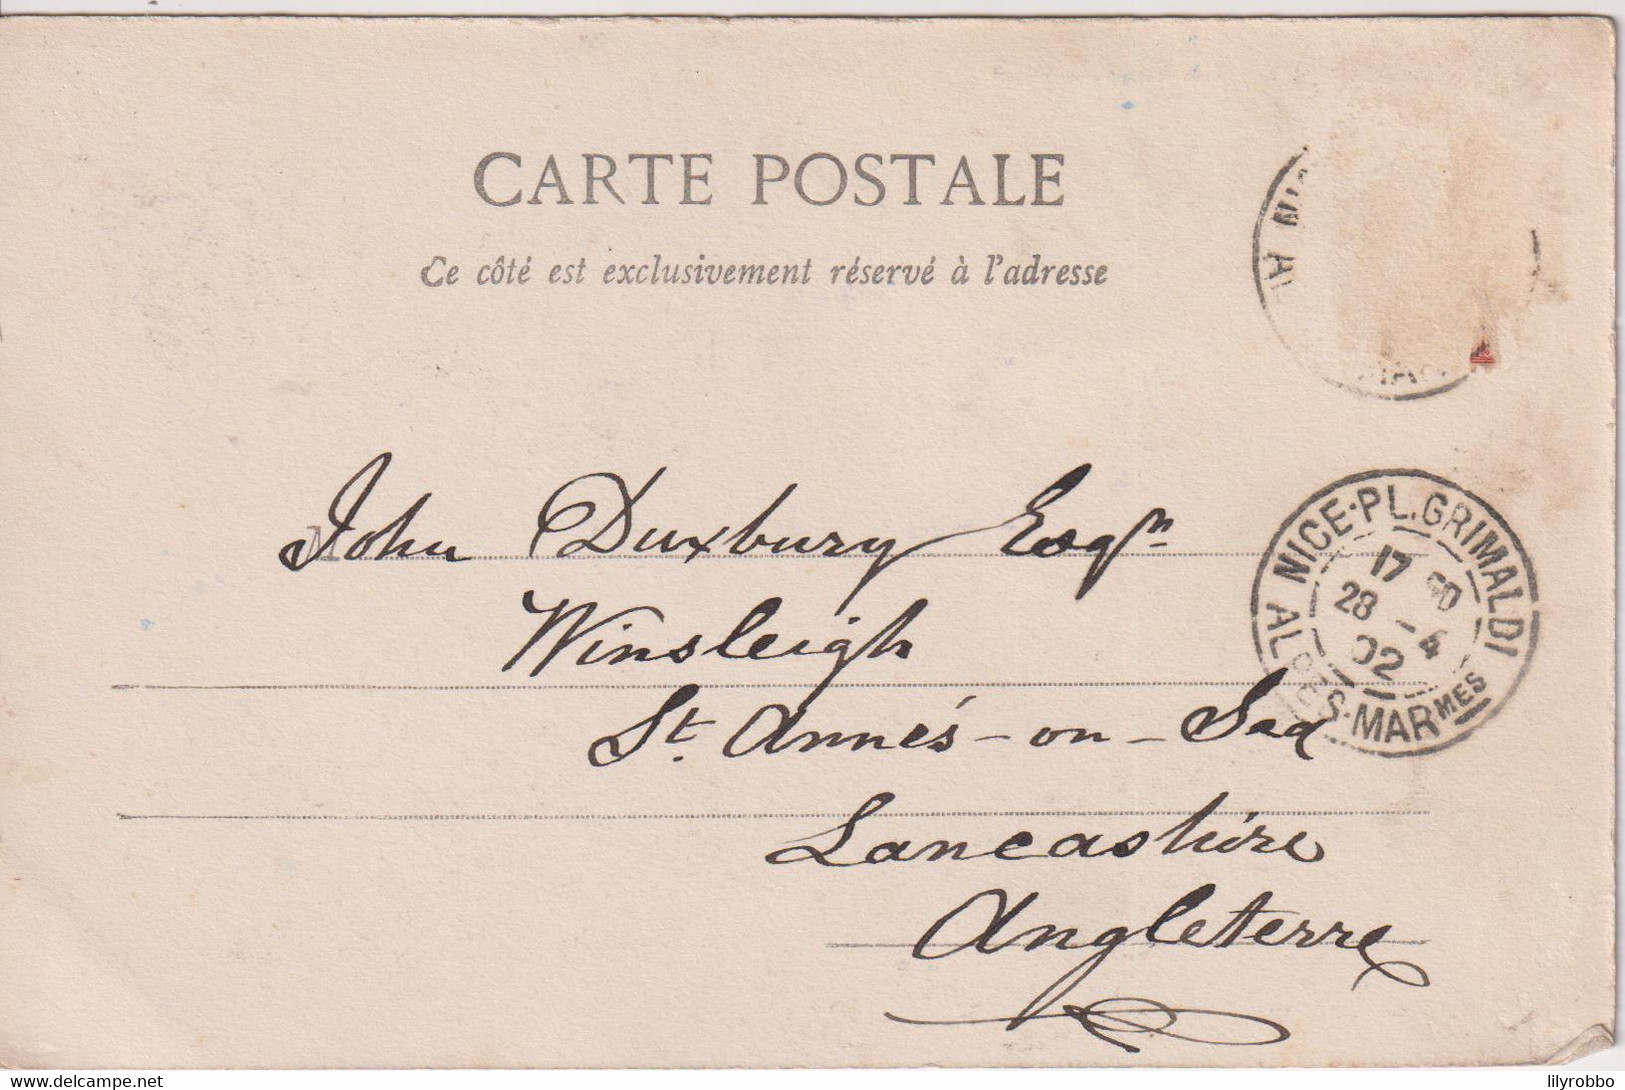 CARTE POSTALE
Ce côté est exclusivement réservé à l'adresse
John Duxbury Esqr
Winsleigh
St. Anne's-on-Sea
Lancashire
Angleterre
NICE-PL. GRIMALDI
17
28 -4
02
ALPES-MARMES
lilyrobbo